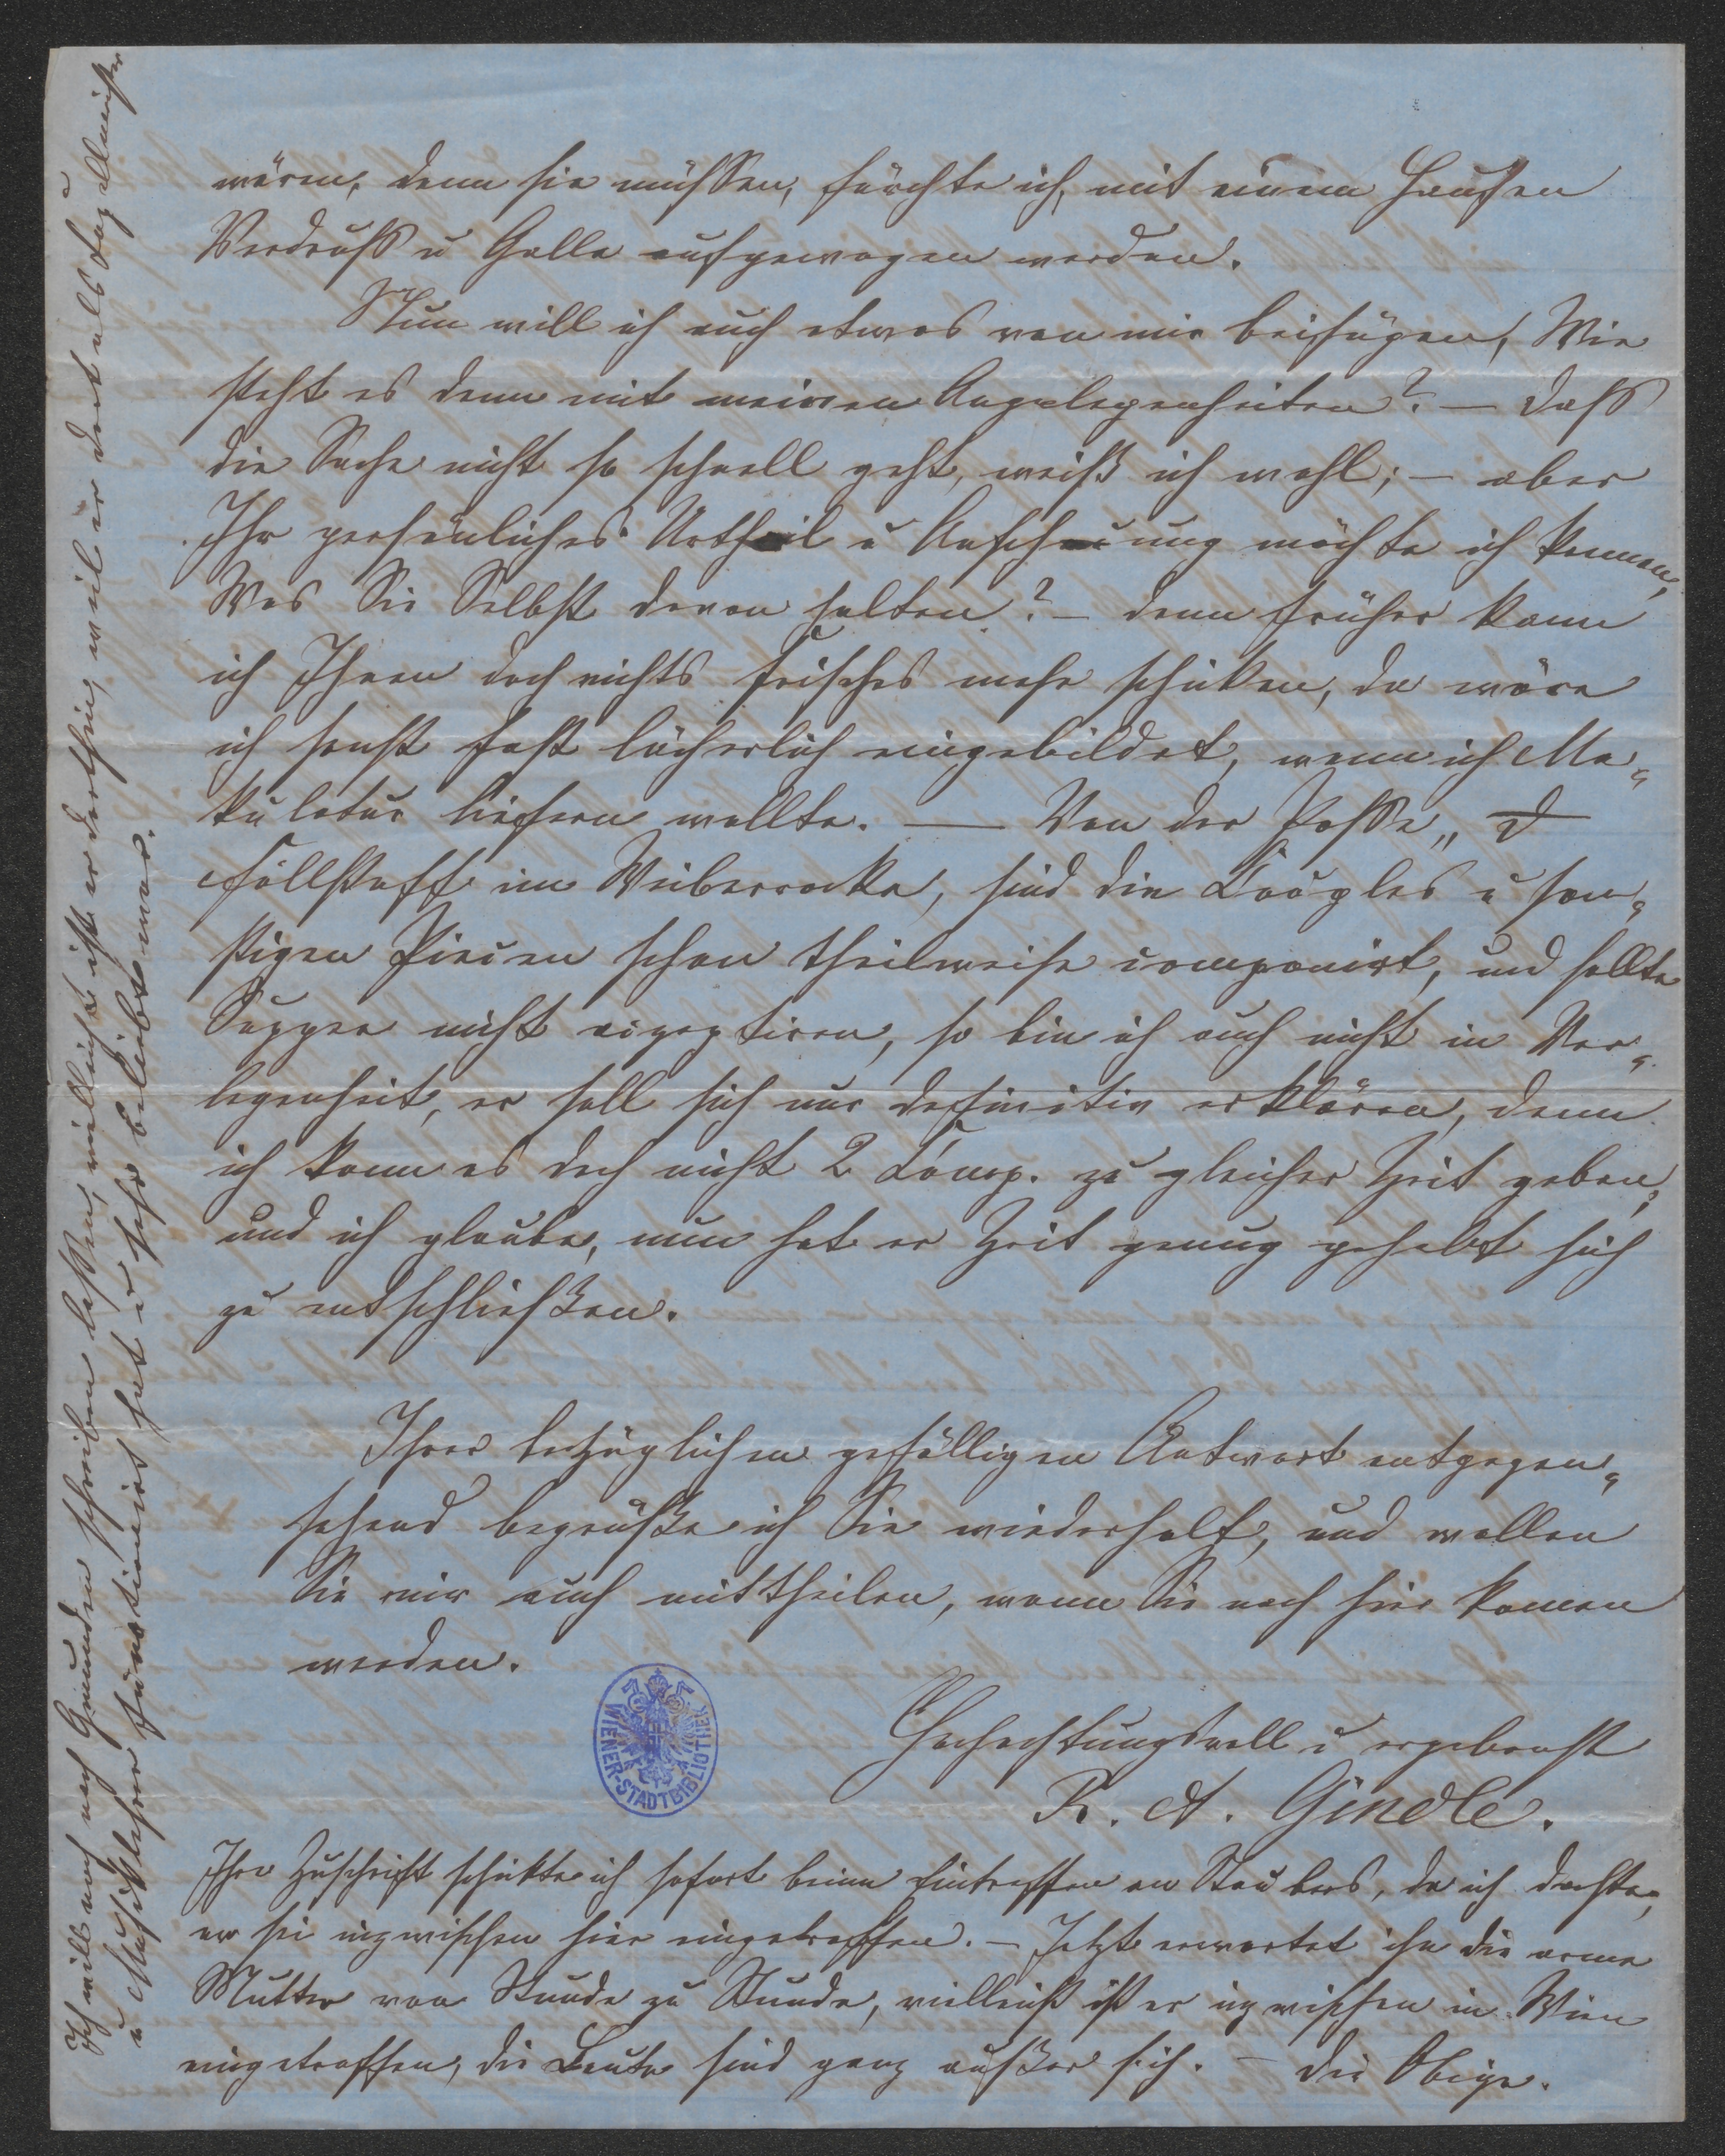 wären, denn sie müssen, fürchte ich, mit einem Haufen
Verdruß u Galle aufgewogen werden.
Nun will ich auch etwas von mir beifügen, Wie
steht es denn mit meinen Angelegenheiten? — daß
die Sache nicht so schnell geht, weiß ich wohl; — aber
Ihr persönliches Urtheil u Anschauung möchte ich kennen,
Was Sie Selbst davon halten? — denn früher kann
ich Ihnen doch nichts frisches mehr schicken, da wäre
ich sonst fast lächerlich eingebildet, wenn ich Ma„
kulatur liefern wollte. — Von der Posse „
Fallstaff im Weiberrocke, sind die Couplets u son„
stigen Piecen schon theilweise componirt, und sollte
Suppee nicht acceptiren, so bin ich auch nicht in Ver„
legenheit, er soll sich nur definitiv erklären, denn
ich kann es doch nicht 2 Comp. zu gleicher Zeit geben,
und ich glaube, nun hat er Zeit genug gehabt sich
zu entschließen.
Ihrer bezüglichen gefälligen Antwort entgegen„
sehend begrüße ich Sie wiederholt, und wollen
Sie mir auch mittheilen, wann Sie nach hier komen
werden.
WIENER-STADTBIBLIOTHEK
Hochachtungsvoll u ergebenst
R. A. Gindle.
Ihre Zuschrift schickte ich sofort beim Eintreffen an Staubers, da ich dachte,
er sei inzwischen hier eingetroffen. — Jetzt erwartet ihn die arme
Mutter von Stunde zu Stunde, vielleicht ist er inzwischen in Wien
eingetroffen, die Leute sind ganz außer sich. — die Obige.
Ich will noch nach Gmunden schreiben lassen, vielleicht ist er dorthin, weil er dort als
u Musiklehrer funktionirt hat u sehr beliebt war.